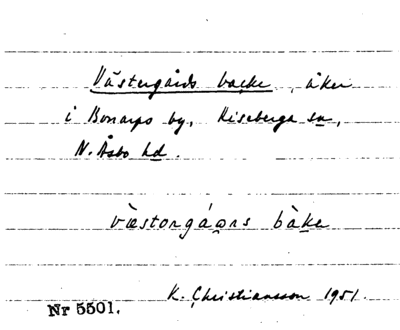 Västergårds backe, åker
i Bonarps by, Riseberga sn,
N. Åsbo hd.
væstorgá͡ors bàke
K. Christiansson 1951.
Nr 5501.